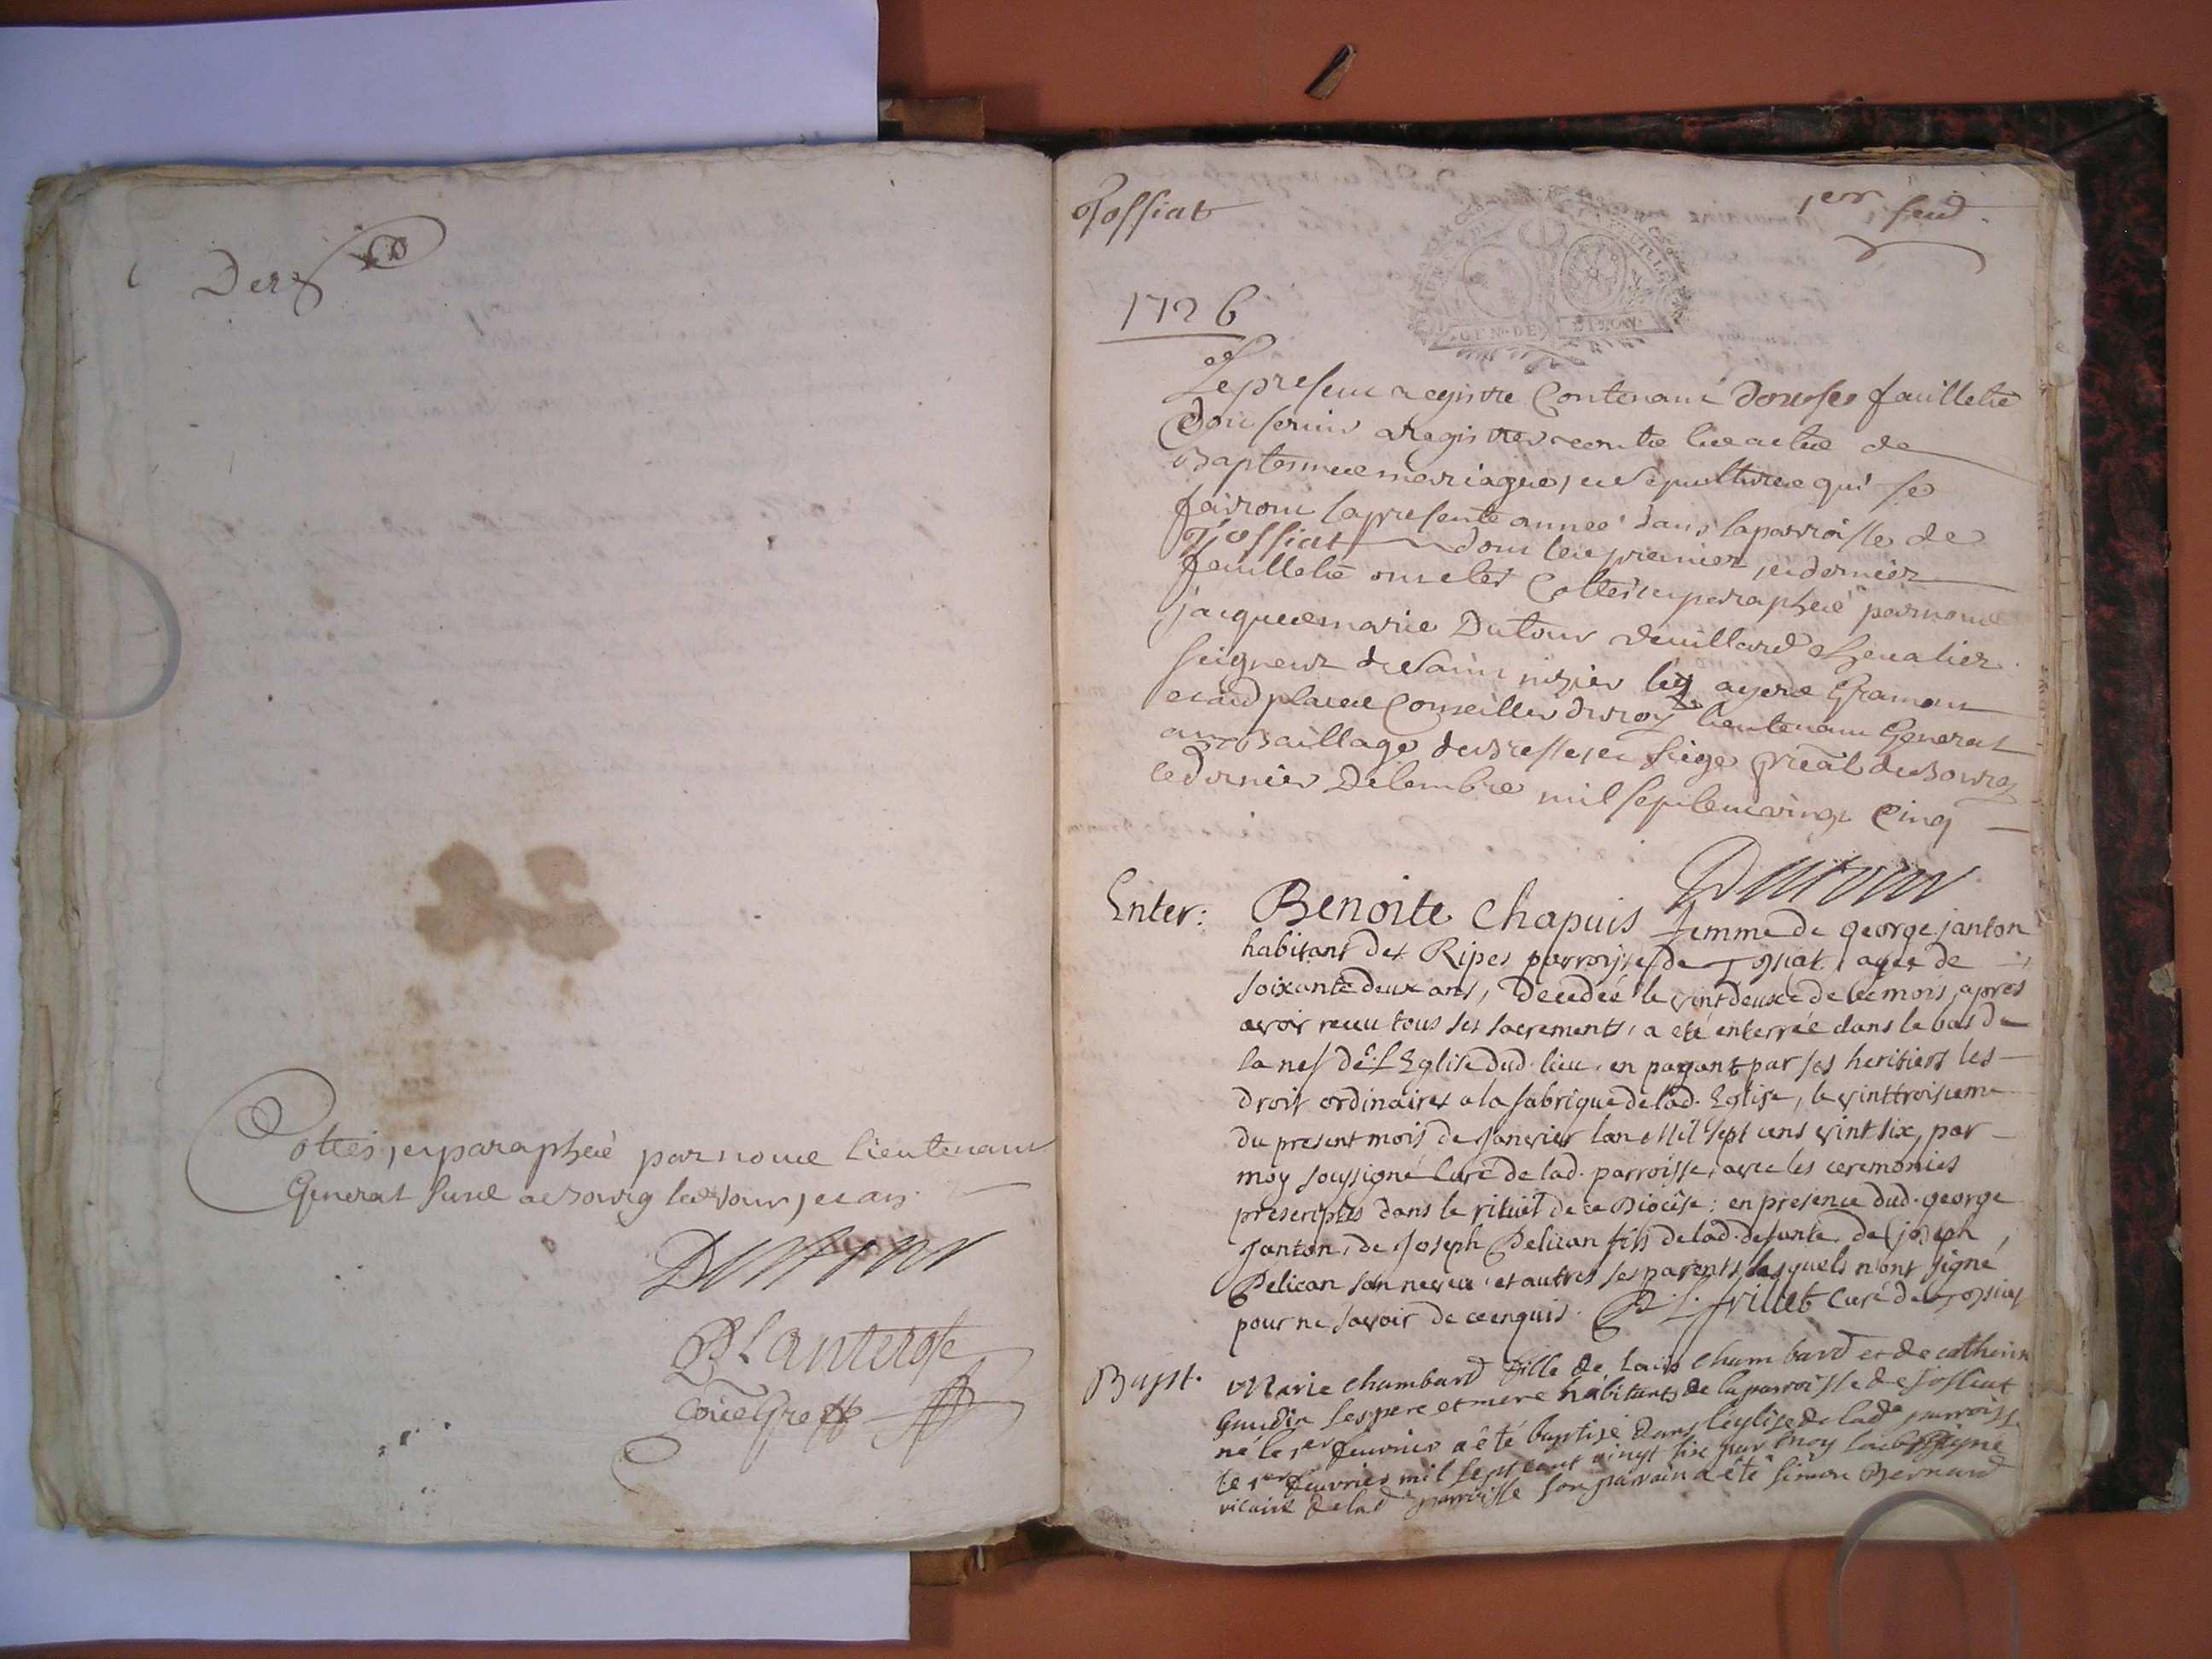 Der
Cottés, et paraphéé par nous lieutenant
General susd. a Bourg les jour, et an.
Dutour
Planterose
Comis Greff
Tossiat
1er feuil.
GEN. DE DIJON
1726
Le present registre Contenant douse feuillets
dont servir a registrer contre les actes de
Baptesmes mariages, et sepultures qui se
fairont la presente année dans la parroisse de
Tossiat dont les premier, et dernier
feuillets ont etés Cottés et paraphés par nous
jacques marie Dutour Deuillard Cheualier
seigneur de Saint nizier les ayers Gramont
et aud places Conseiller du roy lieutenant General
au Baillage de Bresse, et siege preal de Bourg
le dernier Decembre mil sept cent vingt Cinq
Dutour
Enter: Benoite Chapuis femme de george janton
habitant des Ripes parroisse de Tossiat, agée de
soixante deux ans, decedée le vint deuxe de ce mois, apres
avoir receu tous ses sacrements, a eté enterrée dans le bas de
la nef de L'Eglise dud. lieu, en payant par ses heritiers les
droit ordinaires a la fabrique de lad. Eglise, le vinttroisieme
du present mois de Janvier lan Mil sept cens vint six, par
moy soussigné Curé de lad. parroisse, avec les ceremonies
prescriptes dans le rituel de ce Diocese: en presence dud. george
Janton, de Joseph Pelican fils de lad. defunte, de joseph
Pelican son neveu, et autres ses parents lesquels n'ont signé
pour ne savoir de ce enquis. frillet Curé de Tossiat
Bapt. Marie Chambard fille de Louis Chambard et de catherin
Gaudin ses pere et mere habitants de la parroisse de Tossiat
né le 1er feuvrier a été baptisé dans l'église de lade parroiss
le 1er feuvrier mil sept cent vingt six par moy soubsigné
vicaire de lade parroisse son parrain a été Simon Bernard